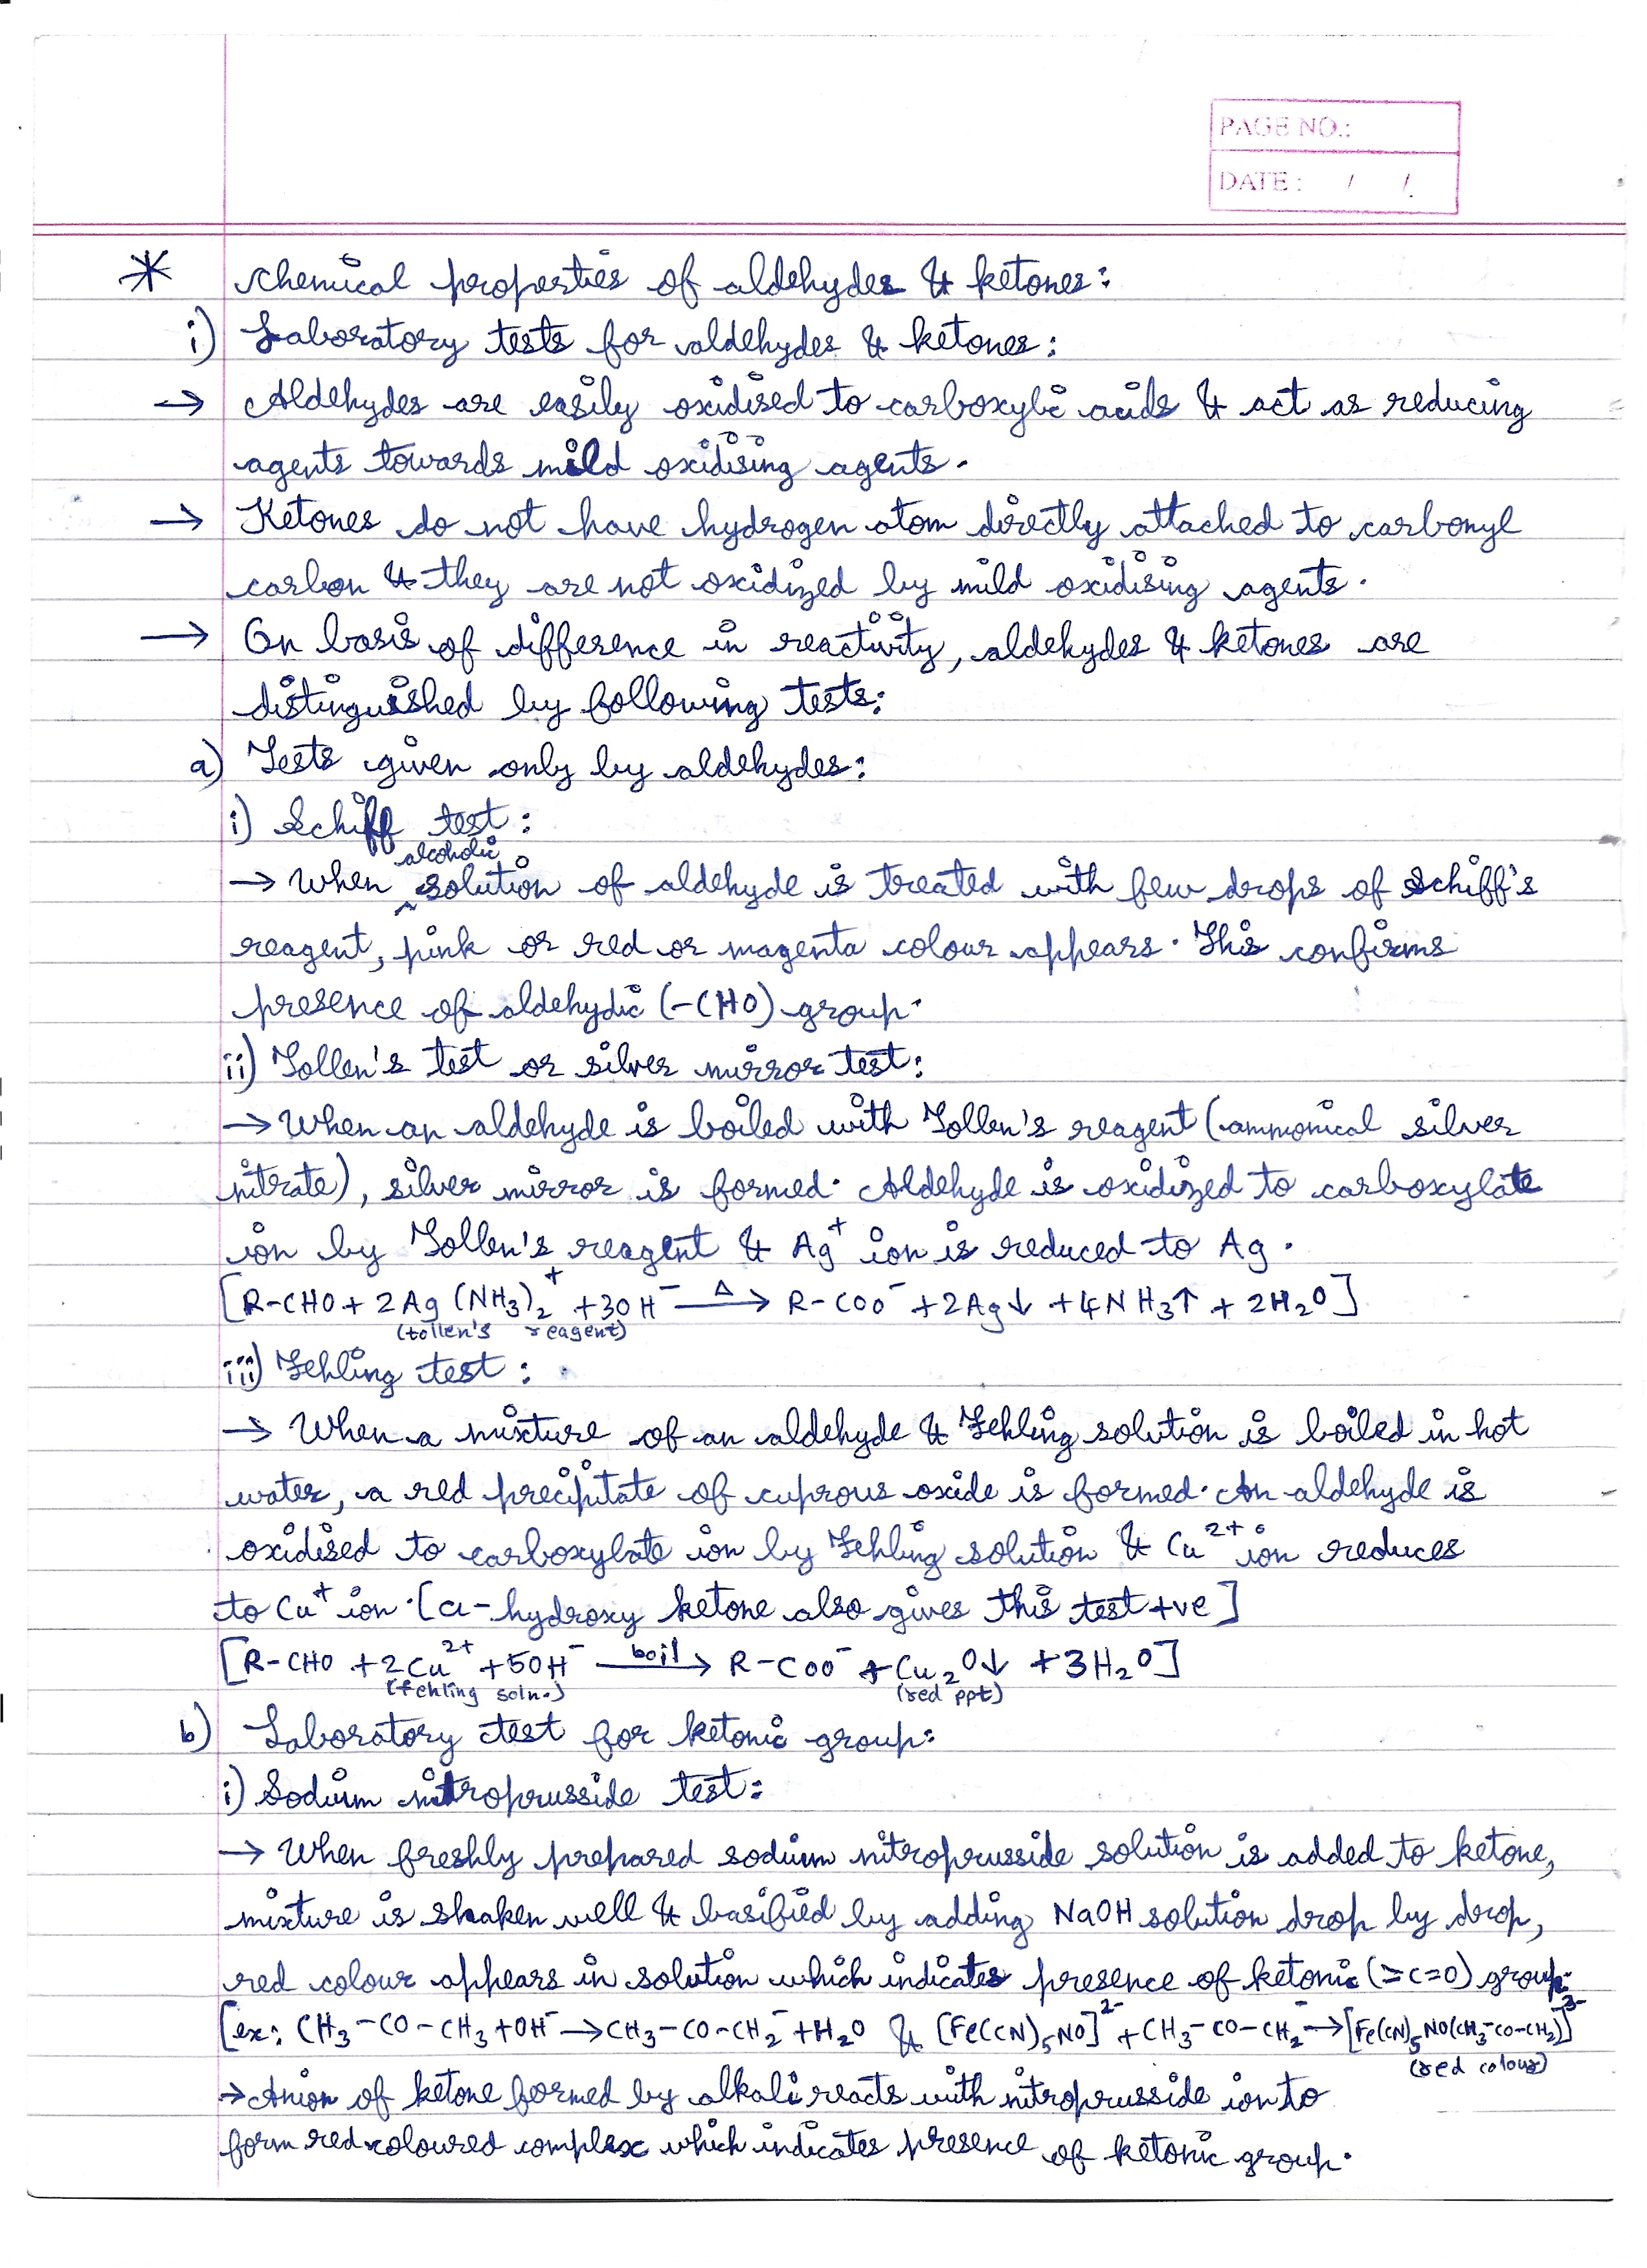 PAGE NO.:
DATE : / /
* Chemical properties of aldehydes & ketones:
i) Laboratory tests for aldehydes & ketones:
→ Aldehydes are easily oxidised to carboxylic acids & act as reducing
agents towards mild oxidising agents.
→ Ketones do not have hydrogen atom directly attached to carbonyl
carbon & they are not oxidized by mild oxidising agents.
→ On basis of difference in reactivity, aldehydes & ketones are
distinguished by following tests:
a) Tests given only by aldehydes:
i) Schiff test:
→ When alcoholic solution of aldehyde is treated with few drops of Schiff's
reagent, pink or red or magenta colour appears. This confirms
presence of aldehydic (-CHO) group.
ii) Tollen's test or silver mirror test:
→ When an aldehyde is boiled with Tollen's reagent (ammonical silver
nitrate), silver mirror is formed. Aldehyde is oxidized to carboxylate
ion by Tollen's reagent & Ag⁺ ion is reduced to Ag.
[R-CHO + 2Ag(NH₃)₂⁺ + 3OH⁻ —Δ→ R-COO⁻ + 2Ag↓ + 4NH₃↑ + 2H₂O]
(tollen's reagent)
iii) Fehling test:
→ When a mixture of an aldehyde & Fehling solution is boiled in hot
water, a red precipitate of cuprous oxide is formed. An aldehyde is
oxidised to carboxylate ion by Fehling solution & Cu²⁺ ion reduces
to Cu⁺ ion. [α-hydroxy ketone also gives this test +ve]
[R-CHO + 2Cu²⁺ + 5OH⁻ —boil→ R-COO⁻ + Cu₂O↓ + 3H₂O]
(fehling soln.) (red ppt)
b) Laboratory test for ketonic group:
i) Sodium nitroprusside test:
→ When freshly prepared sodium nitroprusside solution is added to ketone,
mixture is shaken well & basified by adding NaOH solution drop by drop,
red colour appears in solution which indicates presence of ketonic (>C=O) group.
[ex: CH₃-CO-CH₃+OH⁻→CH₃-CO-CH₂⁻+H₂O & [Fe(CN)₅NO]²⁻+CH₃-CO-CH₂⁻→[Fe(CN)₅NO(CH₃-CO-CH₂)]³⁻
(red colour)
→ Anion of ketone formed by alkali reacts with nitroprusside ion to
form red coloured complex which indicates presence of ketonic group.